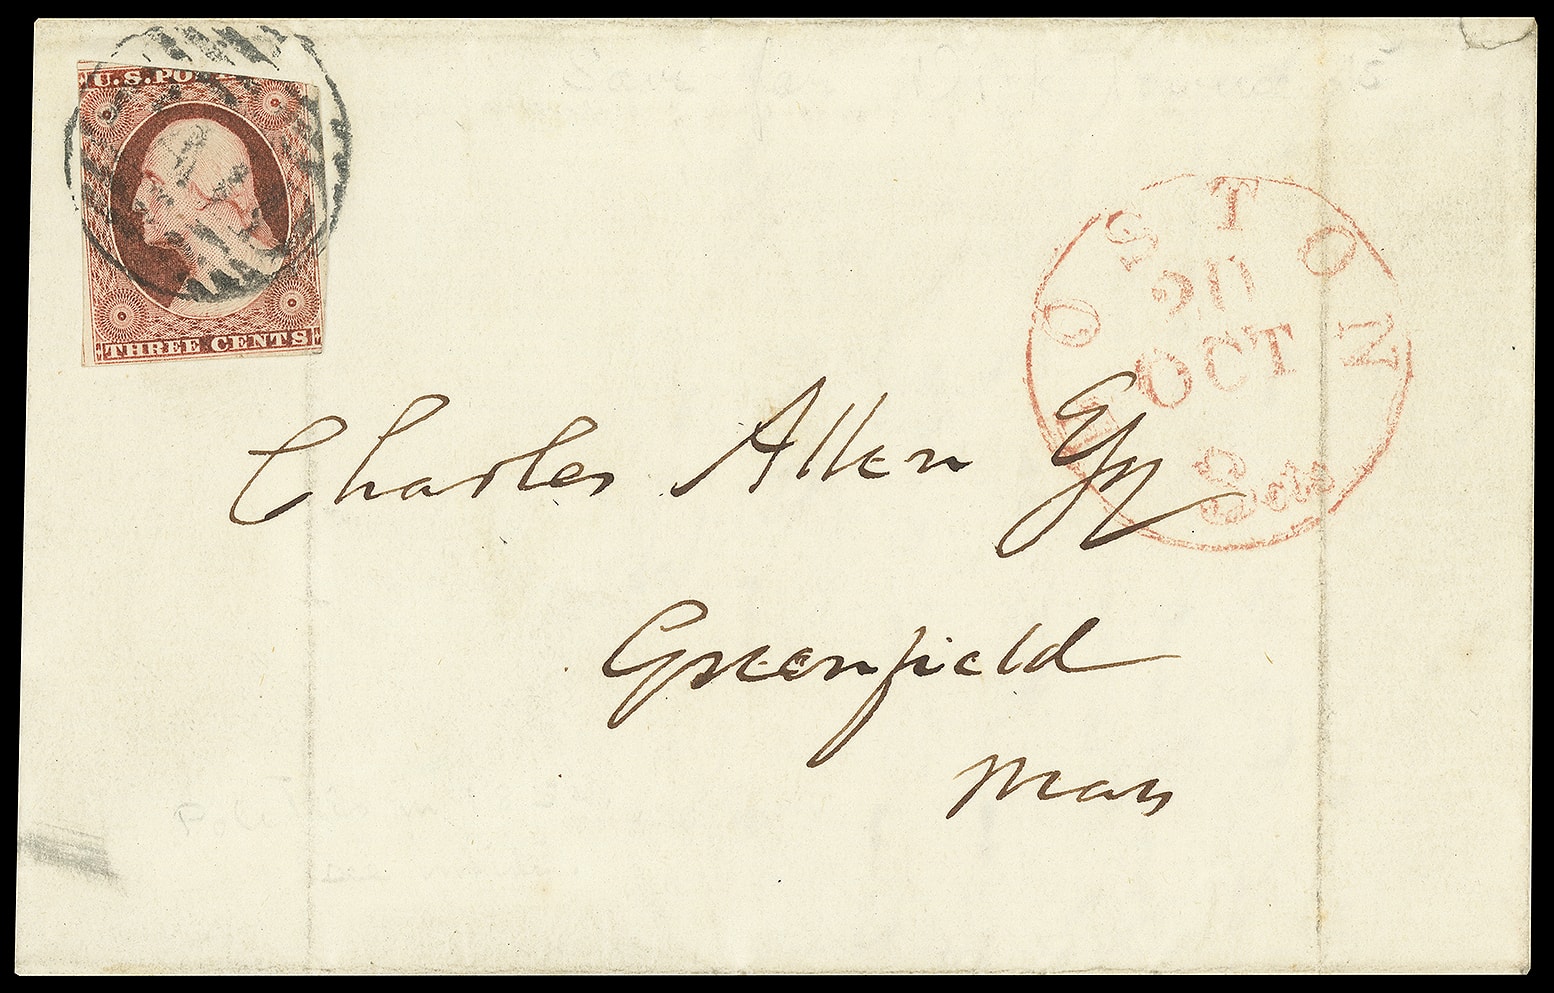 U.S.PO
THREE CENTS
BOSTON
20
OCT
3 cts
Charles Allen Esq
Greenfield
Mass